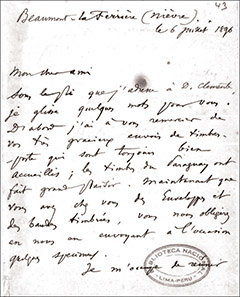 43
Beaumont-la-Ferrière (Nièvre)
le 6 juillet 1896
Mon cher ami
Sous le pli que j'adresse à D. Clemente
je glisse quelques mots pour vous.
D'abord j'ai à vous remercier de
vos très gracieux envois de timbres-
poste qui sont toujours bien
accueillis; les timbres du Paraguay ont
fait grand plaisir. Maintenant que
vous avez chez vous des Enveloppes et
des bandes timbrées, vous nous obligerez
en nous en envoyant à l'occasion
quelques specimens.
Je m'occupe de
BIBLIOTECA NACIONAL
LIMA-PERU